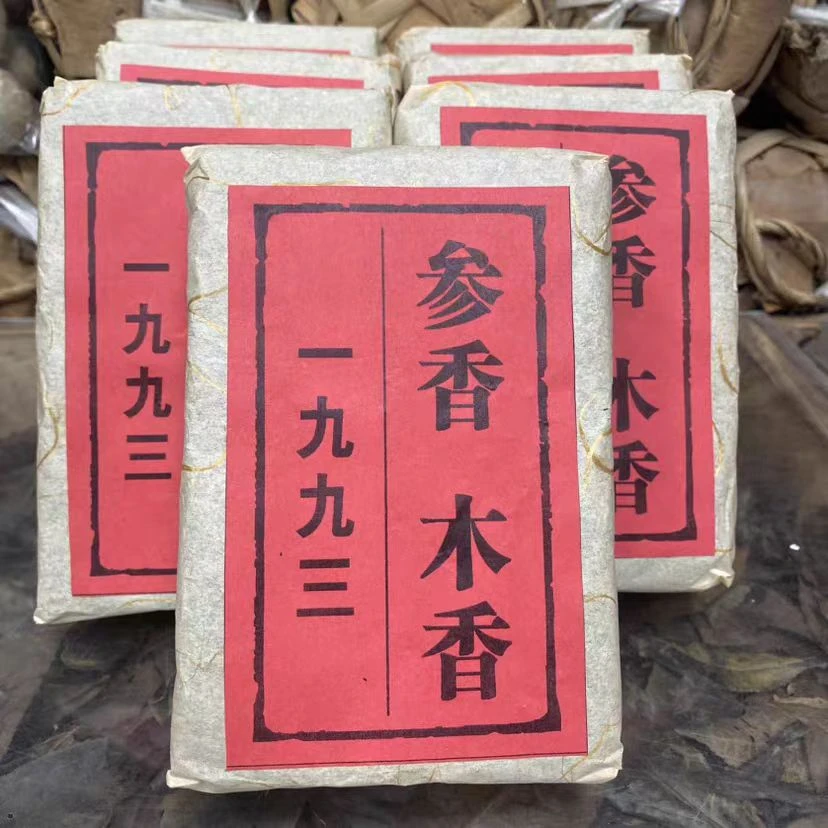 参香 木香
一九九三
一九九三
参香 木香